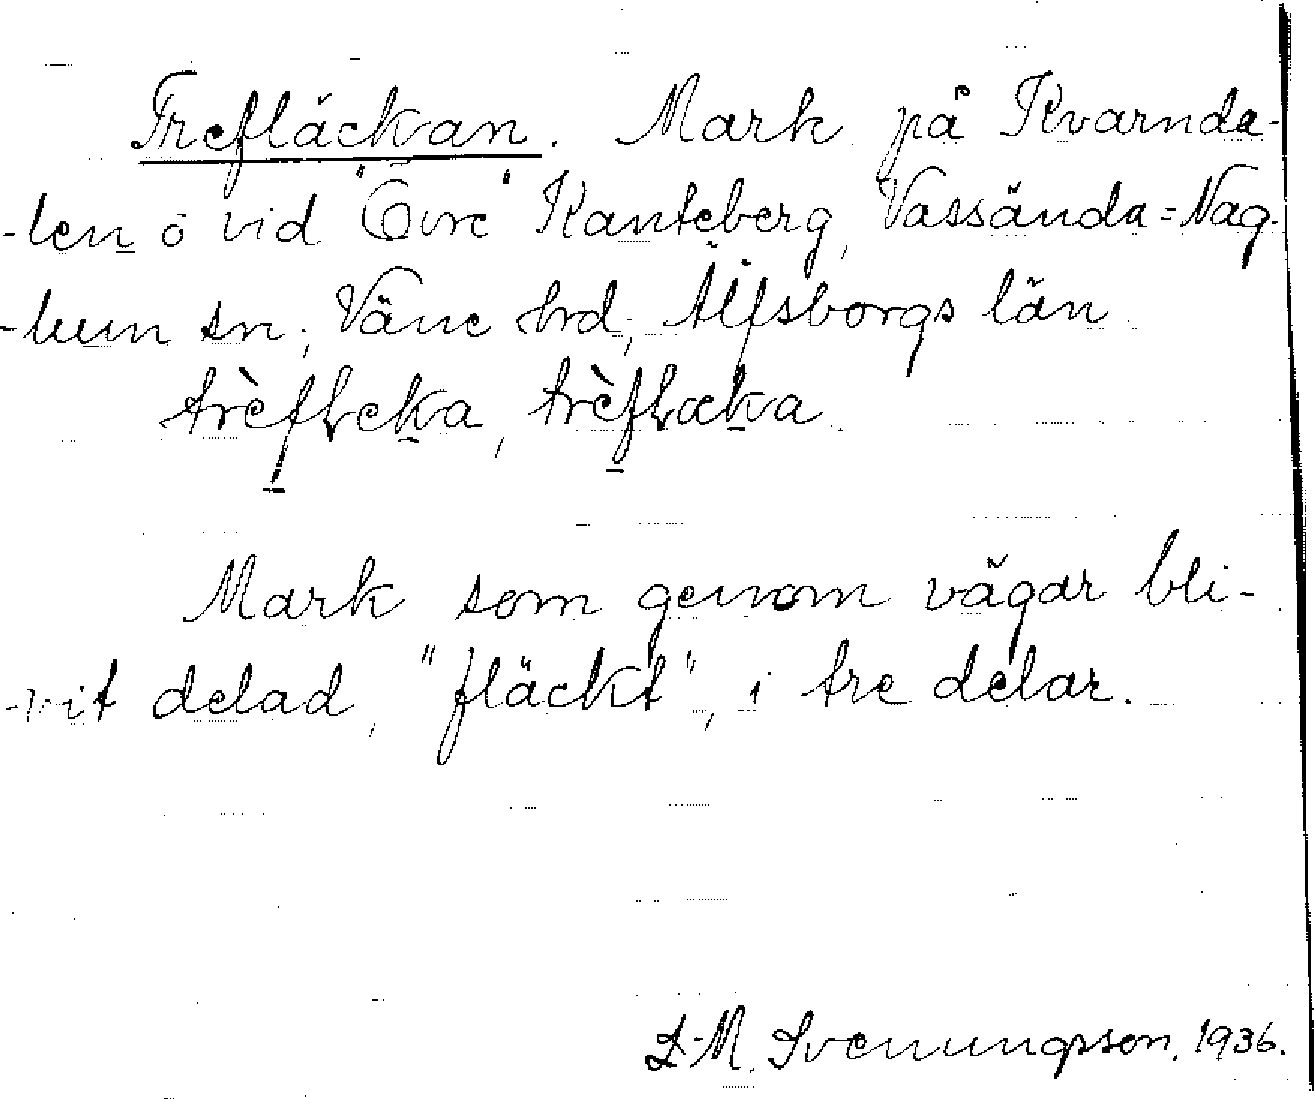 Trefläckan. Mark på Kvarnda-
-len ö vid "Övre" Kanteberg, Vassända=Nag-
-lum sn, Väne hrd, Älfsborgs län.
trèfLeka, trèfLæka
Mark som genom vägar bli-
-vit delad, "fläckt", i tre delar.
L-M. Svenungsson. 1936.